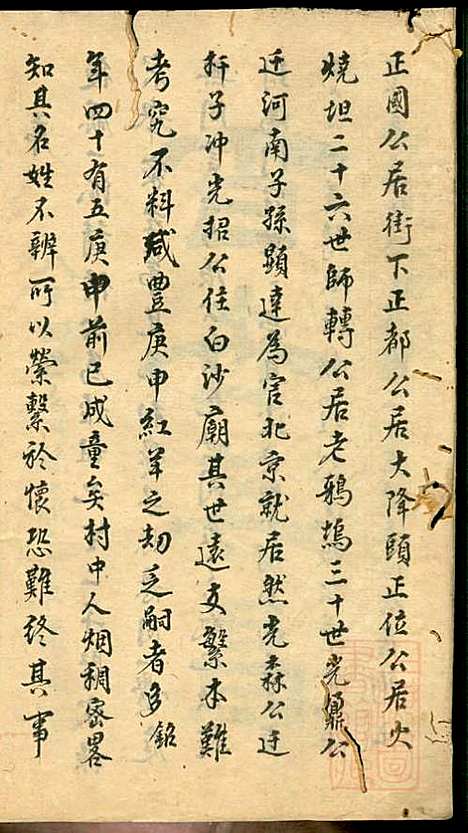 正國公居街下正都公居大降頭正位公居火
燒坦二十六世師轉公居老鴉塢三十世光鼎公
迁河南子孫顕達為官北京就居然光森公迁
扞子冲光招公住白沙廟其世遠支繁本難
考究不料咸豊庚申紅羊之刼乏嗣者多銘
年四十有五庚申前已成童矣村中人烟稠宻畧
知其名姓不辨所以縈繫於懷恐難終其事